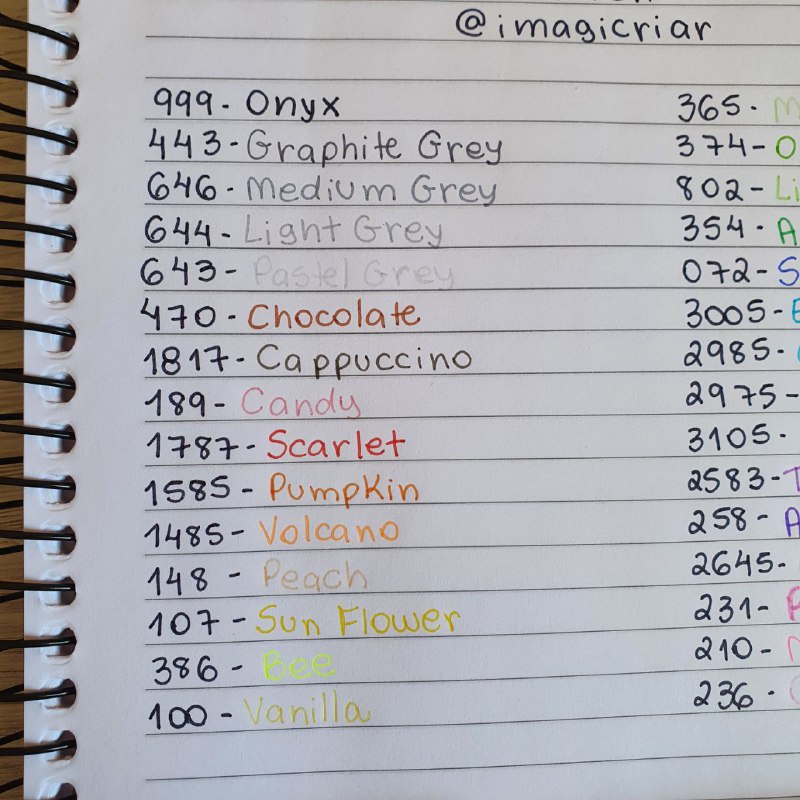 @imagicriar
999 - Onyx
443 - Graphite Grey
646 - Medium Grey
644 - Light Grey
643 - Pastel Grey
470 - Chocolate
1817 - Cappuccino
189 - Candy
1787 - Scarlet
1585 - Pumpkin
1485 - Volcano
148 - Peach
107 - Sun Flower
386 - Bee
100 - Vanilla
365 -
374 -
802 -
354 -
072 -
3005 -
2985 -
2975 -
3105 -
2583 -
258 -
2645 -
231 -
210 -
236 -